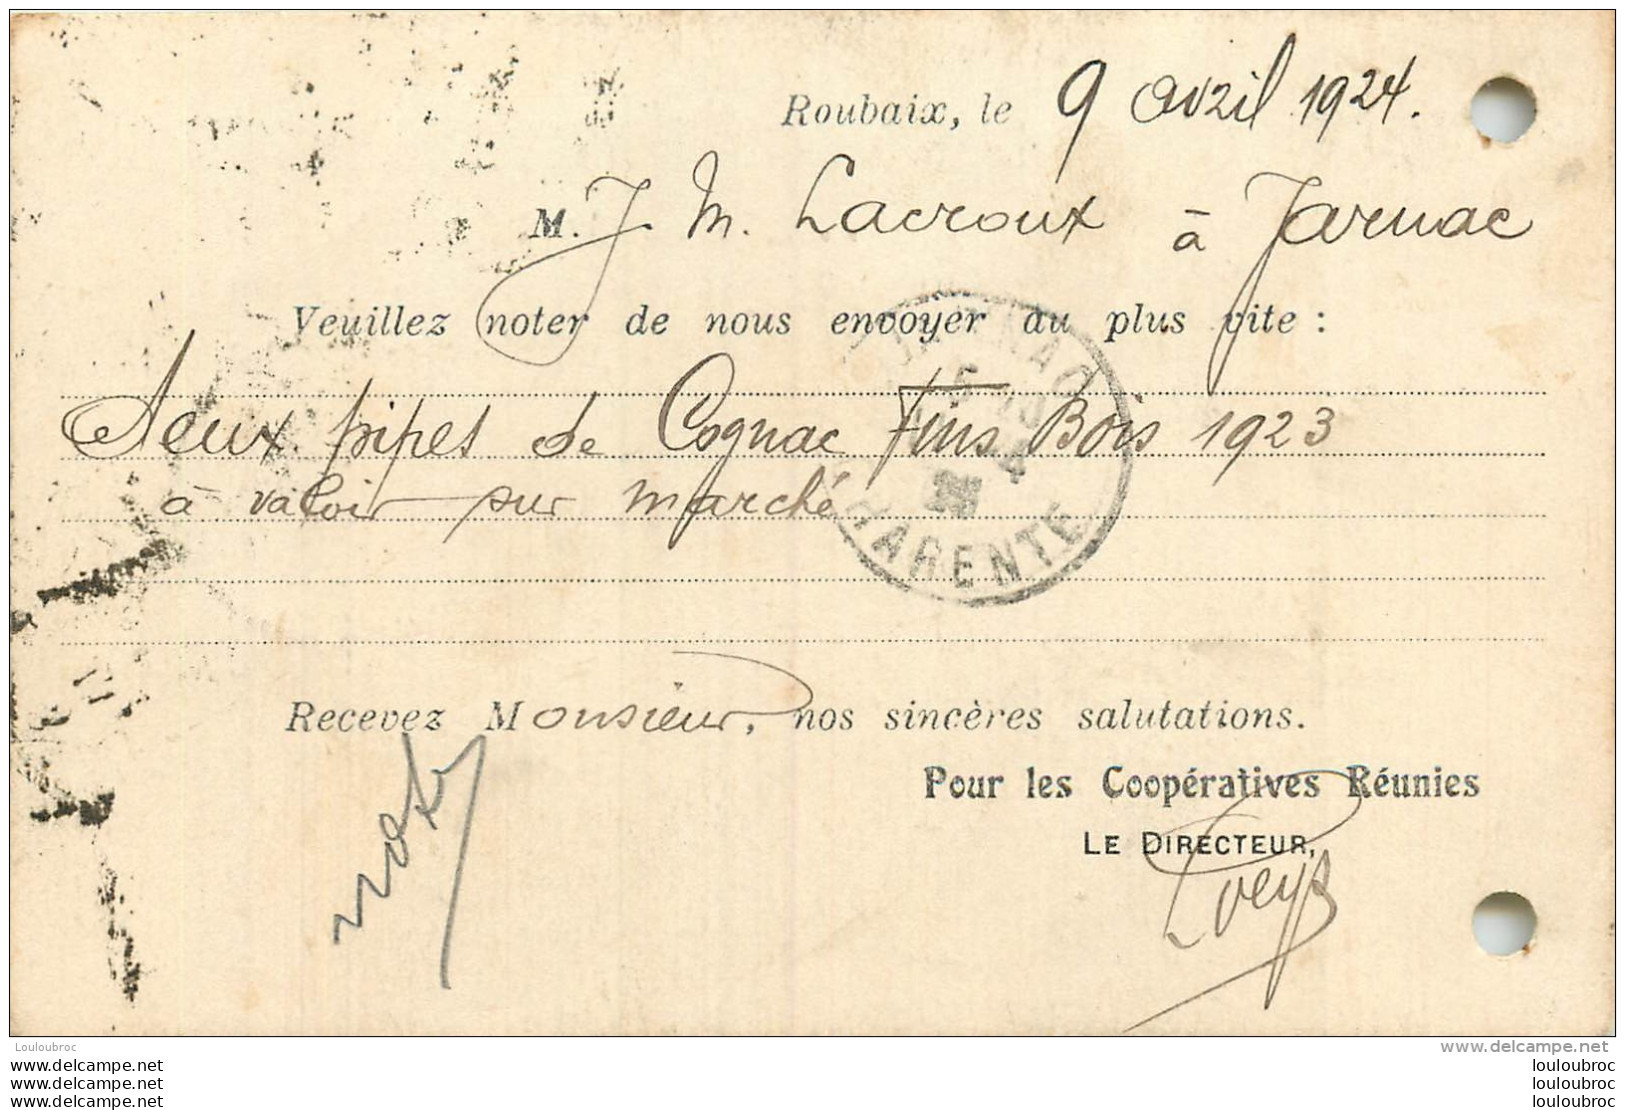 Roubaix, le 9 avril 1924.
M. J. M. Lacroux à Jarnac
Veuillez noter de nous envoyer au plus vite :
Deux pipes de Cognac Fins Bois 1923
à valoir sur marché
CHARENTE
Recevez Monsieur, nos sincères salutations.
Pour les Coopératives Réunies
LE DIRECTEUR,
Louloubroc
www.delcampe.net
louloubroc louloubroc
louloubroc louloubroc
louloubroc louloubroc